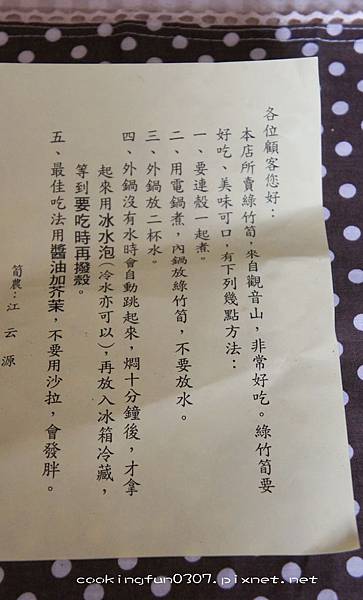 各位顧客您好：
本店所賣綠竹筍，來自觀音山，非常好吃。綠竹筍要
好吃、美味可口，有下列幾點方法：
一、要連殼一起煮。
二、用電鍋煮，內鍋放綠竹筍，不要放水。
三、外鍋放二杯水。
四、外鍋沒有水時會自動跳起來，燜十分鐘後，才拿
起來用冰水泡(冷水亦可以)，再放入冰箱冷藏，
等到要吃時再撥殼。
五、最佳吃法用醬油加芥茉，不要用沙拉，會發胖。
筍農：江云源
cookingfun0307.pixnet.net